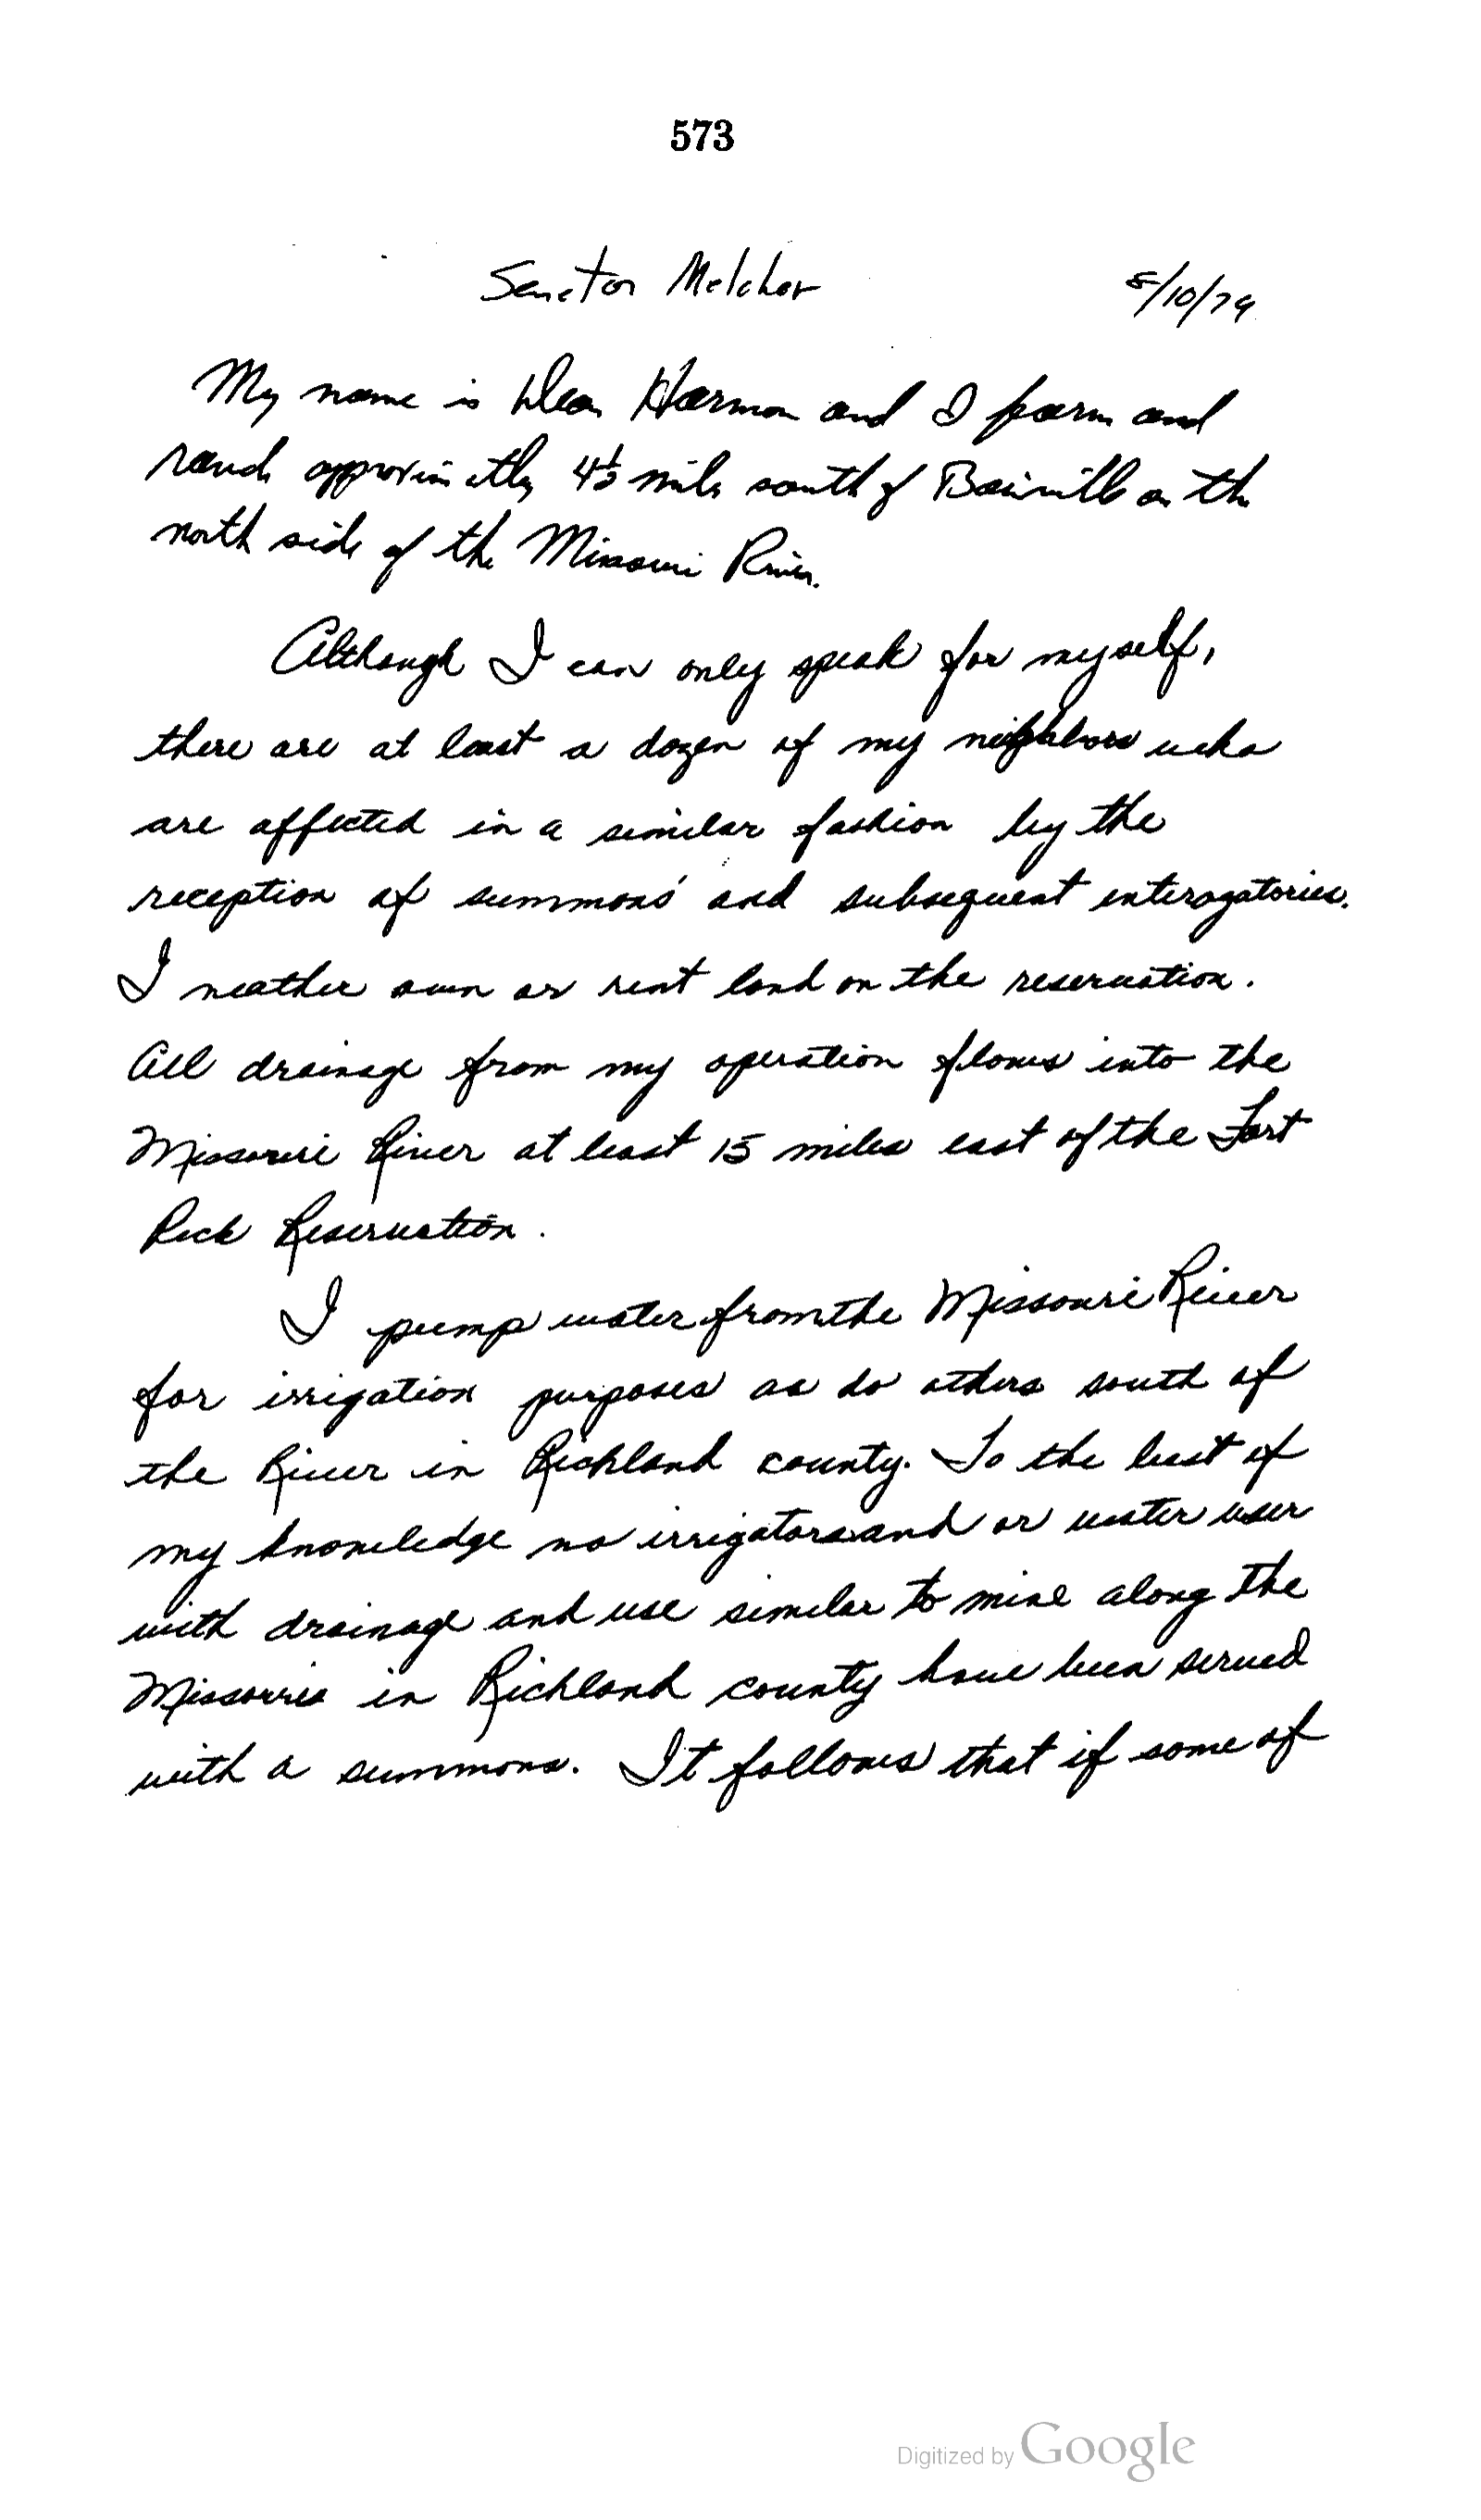 573
Senator Melcher 8/10/79
My name is Dean Harmon and I farm and
ranch approximatly 4½ mile south of Bainville on the
north side of the Missouri River.
Although I can only speak for myself,
there are at least a dozen of my neighbors who
are affected in a similar fashion by the
reception of summons' and subsequent interogatories.
I neather own or rent land on the reservation.
All drainage from my operation flows into the
Missouri River at least 15 miles east of the Fort
Peck Reservation.
I pump water from the Missouri River
for irrigation purposes as do others south of
the River in Richland county. To the best of
my knowledge no irrigators and or water user
with drainage and use similar to mine along the
Missouri in Richland county have been served
with a summons. It follows that if some of
Digitized by Google